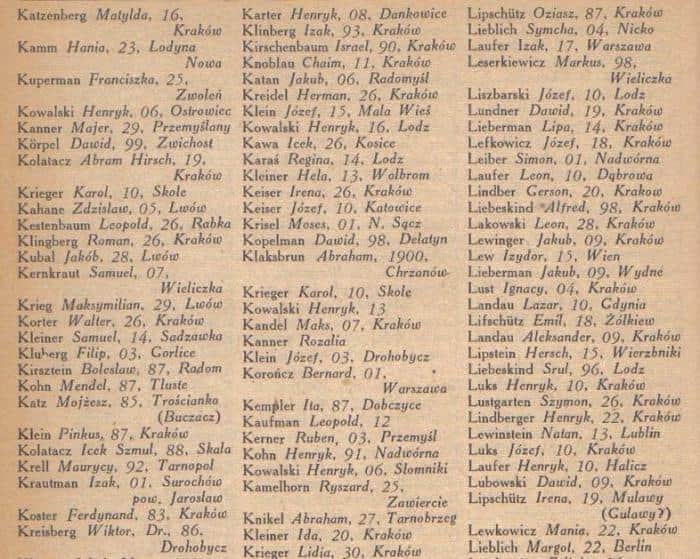 Katzenberg Matylda, 16,
Kraków
Kamm Hania, 23, Lodyna
Nowa
Kuperman Franciszka, 25,
Zwoleń
Kowalski Henryk, 06, Ostrowiec
Kanner Majer, 29, Przemyślany
Körpel Dawid, 99, Zwichost
Kolatacz Abram Hirsch, 19,
Kraków
Krieger Karol, 10, Skole
Kahane Zdzislaw, 05, Lwów
Kestenbaum Leopold, 26, Rabka
Klingberg Roman, 26, Kraków
Kubal Jakób, 28, Lwów
Kernkraut Samuel, 07,
Wieliczka
Krieg Maksymilian, 29, Lwów
Korter Walter, 26, Kraków
Kleiner Samuel, 14, Sadzawka
Kluberg Filip, 03, Gorlice
Kirsztein Boleslaw, 87, Radom
Kohn Mendel, 87, Tluste
Katz Mojżesz, 85, Trościanko
(Buczacz)
Klein Pinkus, 87, Kraków
Kolatacz Icek Szmul, 88, Skala
Krell Maurycy, 92, Tarnopol
Krautman Izak, 01, Surochów
pow. Jaroslaw
Koster Ferdynand, 83, Kraków
Kreisberg Wiktor, Dr., 86,
Drohobycz
Karter Henryk, 08, Dankowice
Klinberg Izak, 93, Kraków
Kirschenbaum Israel, 90, Kraków
Knoblau Chaim, 11, Kraków
Katan Jakub, 06, Radomyśl
Kreidel Herman, 26, Kraków
Klein Józef, 15, Mala Wieś
Kowalski Henryk, 16, Lodz
Kawa Icek, 26, Kosice
Karaś Regina, 14, Lodz
Kleiner Hela, 13, Wolbrom
Keiser Irena, 26, Kraków
Keiser Józef, 10, Katowice
Krisel Moses, 01, N. Sącz
Kopelman Dawid, 98, Delatyn
Klaksbrun Abraham, 1900,
Chrzanów
Krieger Karol, 10, Skole
Kowalski Henryk, 13
Kandel Maks, 07, Kraków
Kanner Rozalia
Klein Józef, 03, Drohobycz
Korończ Bernard, 01,
Warszawa
Kempler Ita, 87, Dobczyce
Kaufman Leopold, 12
Kerner Ruben, 03, Przemyśl
Kohn Henryk, 91, Nadwórna
Kowalski Henryk, 06, Slomniki
Kamelhorn Ryszard, 25,
Zawiercie
Knikel Abraham, 27, Tarnobrzeg
Kleiner Ida, 20, Kraków
Krieger Lidia, 30, Kraków
Lipschütz Oziasz, 87, Kraków
Lieblich Symcha, 04, Nicko
Laufer Izak, 17, Warszawa
Leserkiewicz Markus, 98,
Wieliczka
Liszbarski Józef, 10, Lodz
Lundner Dawid, 19, Kraków
Lieberman Lipa, 14, Kraków
Lefkowicz Józef, 18, Kraków
Leiber Simon, 01, Nadwórna
Laufer Leon, 10, Dąbrowa
Lindber Gerson, 20, Krakow
Liebeskind Alfred, 98, Kraków
Lakowski Leon, 28, Kraków
Lewinger Jakub, 09, Kraków
Lew Izydor, 15, Wien
Lieberman Jakub, 09, Wydne
Lust Ignacy, 04, Kraków
Landau Lazar, 10, Gdynia
Lifschütz Emil, 18, Żólkiew
Landau Aleksander, 09, Kraków
Lipstein Hersch, 15, Wierzbniki
Liebeskind Srul, 96, Lodz
Luks Henryk, 10, Kraków
Lustgarten Szymon, 26, Kraków
Lindberger Henryk, 22, Kraków
Lewinstein Natan, 13, Lublin
Luks Józef, 10, Kraków
Laufer Henryk, 10, Halicz
Lubowski Dawid, 09, Kraków
Lipschütz Irena, 19, Mulawy
(Gulawy?)
Lewkowicz Mania, 22, Kraków
Lieblich Margol, 22, Berlin